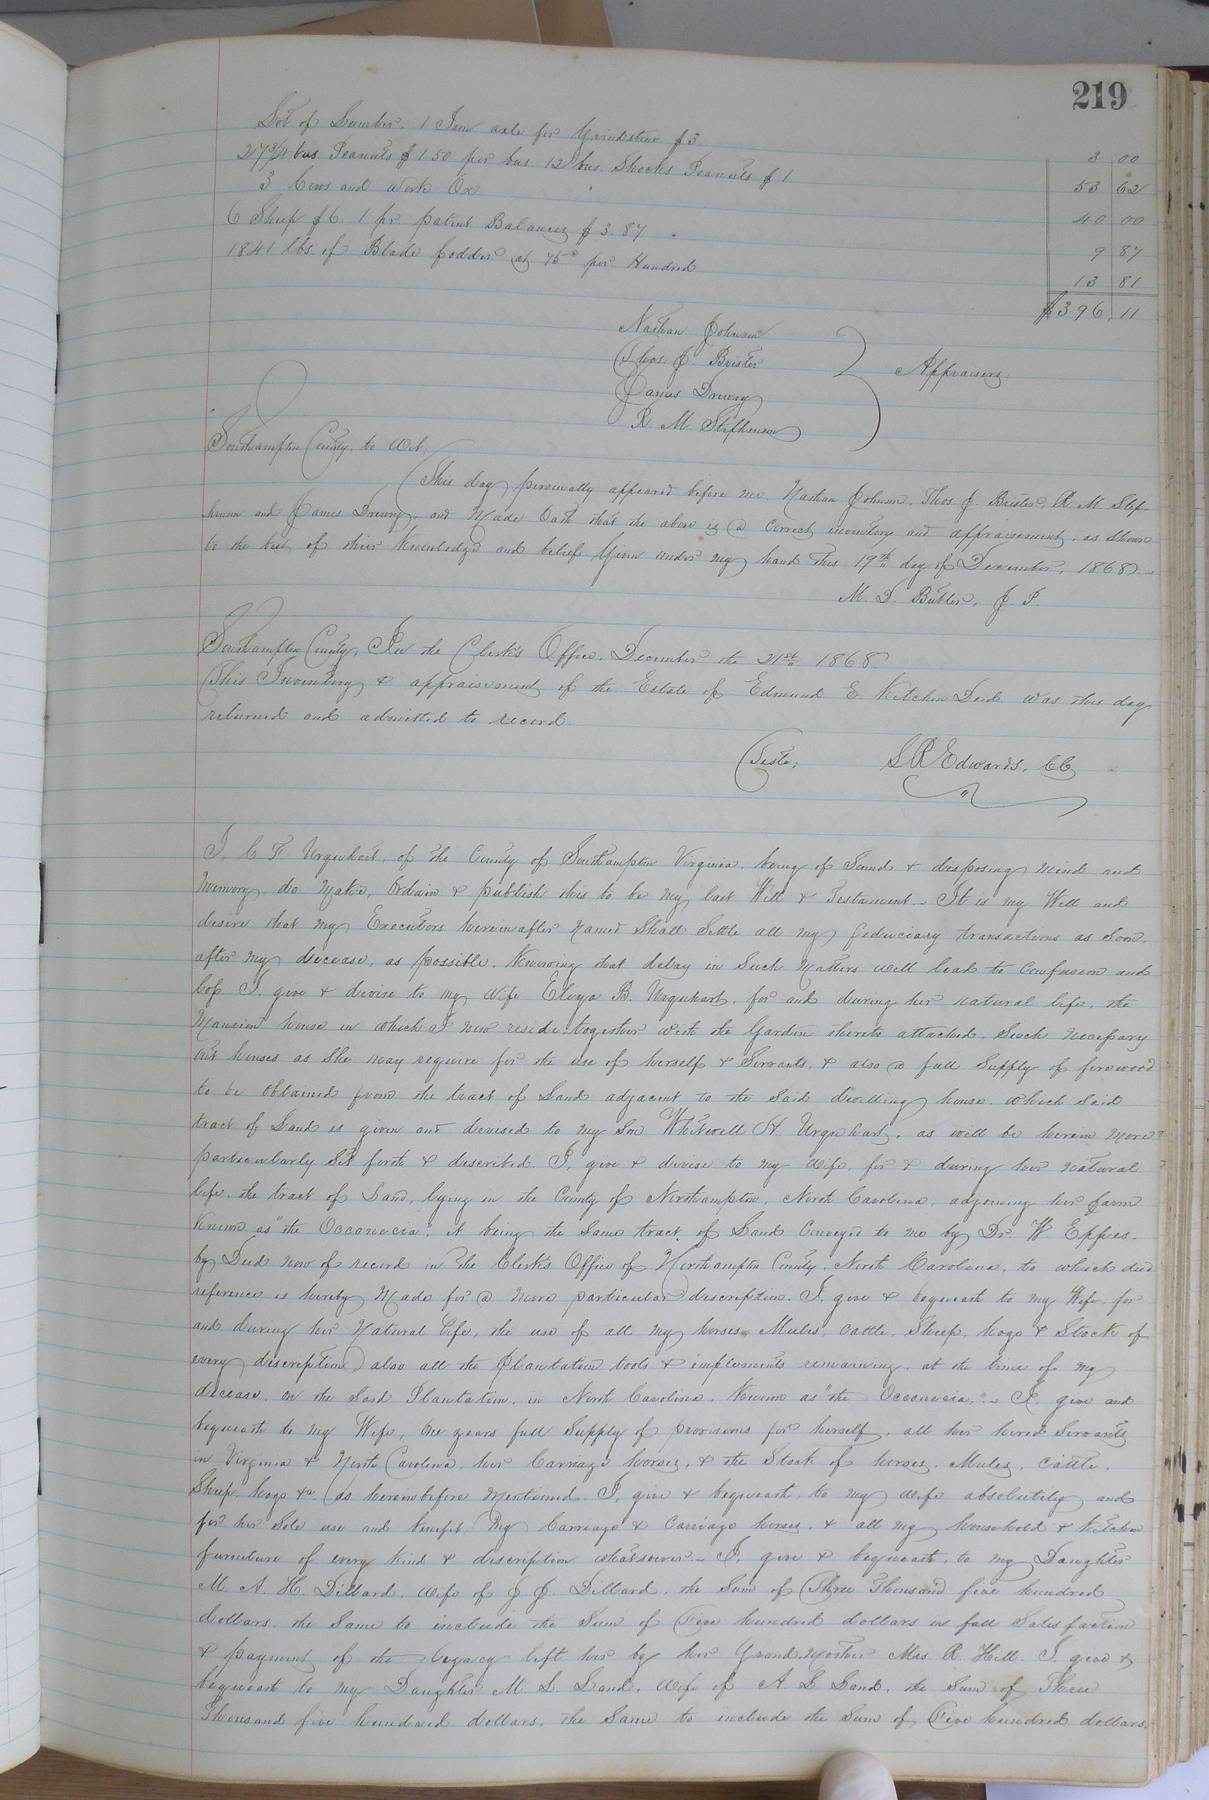 219
Lot of Lumber, 1 Iron axle for Grindstone $3 3 00
27 3/4 bus. Peanuts $1.50 per bus. 12 bus. Shocks Peanuts $1 53 62
3 Cows and work Ox 40 00
6 Sheep $6. 1 pr patent Balances $3.87 9 87
1841 lbs. of Blade fodder at 75c per Hundred 13 81
$396.11
Nathan Johnson
Thos. J. Brister
James Drewry
R. M. Stephenson
Appraisers.
Southampton County, to Wit,
This day personally appeared before me, Nathan Johnson, Thos J. Brister, R. M. Step-
henson and James Drewry, and Made Oath that the above is a Correct inventory and appraisement, as shown
to the best of their Knowledge and belief Given under my hand this 19th day of December, 1868.
M. D. Butler, J. P.
Southampton County, In the Clerk's Office, December the 21st 1868
This Inventory & appraisement of the Estate of Edmund E. Kitchen Decd. was this day
returned and admitted to record.
Teste, S R Edwards, CC
I, C F Urquhart, of the County of Southampton Virginia, being of Sound & disposing Mind and
Memory, do Make, Ordain & publish this to be my last Will & Testament. It is my Will and
desire that my Executors hereinafter Named Shall Settle all my fiduciary transactions as Soon,
after my decease, as possible. Knowing that delay in Such Matters will lead to Confusion and
loss. I, give & devise to my Wife B. Urquhart, for and during her natural life, the
Mansion house in which I now reside, together with the Garden thereto attached, Such Necessary
out houses as She may require for the use of herself & Servants, & also a full Supply of firewood
to be obtained from the tract of Land adjacent to the Said dwelling house, which Said
tract of Land is given and devised to my Son Whitwell H. Urquhart, as will be herein More
particularly Set forth & described. I, give & devise to my Wife, for & during her natural
life, the tract of Land, lying in the County of Northampton, North Carolina, adjoining her farm
Known as "the Occoneecia", it being the Same tract of Land Conveyed to me by Dr. W. Eppes,
by Deed now of record in the Clerk's Office of Northampton County, North Carolina, to which deed
reference is hereby Made for a More particular description. I, give & bequeath to my Wife, for
and during her Natural life, the use of all my horses, Mules, Cattle, Sheep, hogs & Stock of
every description, also all the Plantation tools & implements remaining, at the time of my
decease, on the Said Plantation, in North Carolina, Known as "the Occoneecia," I, give and
bequeath to my Wife, One years full Supply of provisions for herself, all her hired Servants
in Virginia & North Carolina, her Carriage horses, & the Stock of horses, Mules, Cattle,
Sheep, hogs &c. as hereinbefore Mentioned. I, give & bequeath, to my Wife absolutely and
for her Sole use and benefit, My Carriage & Carriage horses, & all my household & Kitchen
furniture of every Kind & description whatsoever. I, give & bequeath, to my Daughter
M. A. H. Dillard, Wife of J J. Dillard, the Sum of Three Thousand five hundred
dollars, the Same to include the Sum of Five hundred dollars in full Satisfaction
& payment of the legacy left her by her Grand-Mother Mrs R. Hill. I, give &
bequeath to my Daughter M. L Land, Wife of A. L Land, the Sum of Three
Thousand five hundred dollars, the Same to include the Sum of Five hundred dollars,